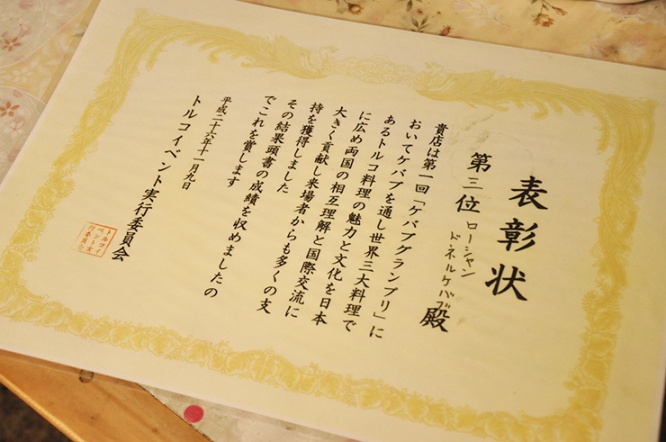 表彰状
第三位
ローシャン
ドネルケバブ
殿
貴店は第一回「ケバブグランプリ」に
おいてケバブを通し世界三大料理で
あるトルコ料理の魅力と文化を日本
に広め両国の相互理解と国際交流に
大きく貢献し来場者からも多くの支
持を獲得しました
その結果頭書の成績を収めましたの
でこれを賞します
平成二十六年十一月九日
トルコイベント実行委員会